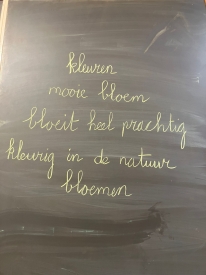 kleuren
mooie bloem
bloeit heel prachtig
kleurig in de natuur
bloemen